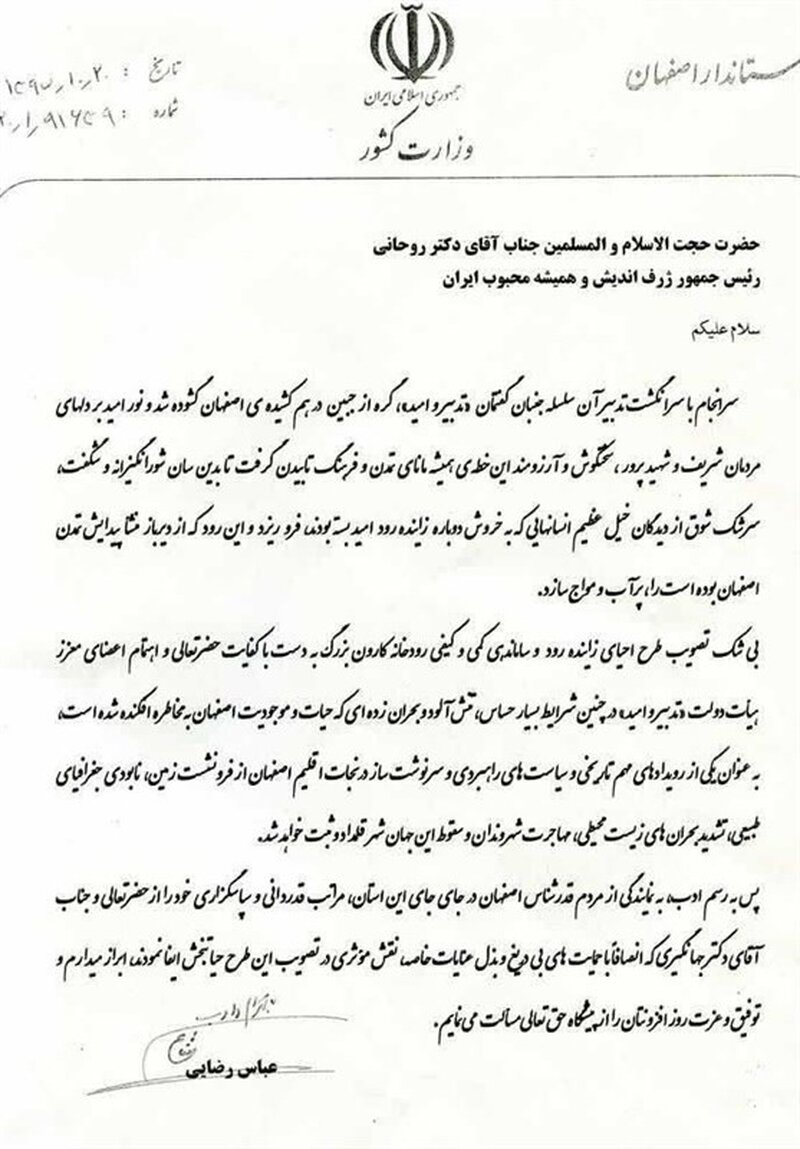 استاندار اصفهان
جمهوری اسلامی ایران
وزارت کشور
تاریخ :
شماره :
حضرت حجت الاسلام و المسلمین جناب آقای دکتر روحانی
رئیس جمهور ژرف اندیش و همیشه محبوب ایران
سلام علیکم
سرانجام با سرانگشت تدبیر آن سلسله جنبان گفتمان «تدبیر و امید»، گره از جبین در هم کشیده ی اصفهان گشوده شد و نور امید بر دلهای
مردمان شریف و شهید پرور ، سختکوش و آرزومند این خطه ی همیشه مانای تمدن و فرهنگ تابیدن گرفت تا بدین سان شورانگیزانه و شگفت،
سرشک شوق از دیدگان خیل عظیم انسانهایی که به خروش دوباره زاینده رود امید بسته بودند، فرو ریزد و این رود که از دیرباز منشا پیدایش تمدن
اصفهان بوده است را، پرآب و مواج سازد.
بی شک تصویب طرح احیای زاینده رود و ساماندهی کمی و کیفی رودخانه کارون بزرگ به دست با کفایت حضرتعالی و اهتمام اعضای معزز
هیأت دولت «تدبیر و امید» در چنین شرایط بسیار حساس، تنش آلود و بحران زده ای که حیات و موجودیت اصفهان به مخاطره افکنده شده است،
به عنوان یکی از رویدادهای مهم تاریخی و سیاست های راهبردی و سرنوشت ساز در نجات اقلیم اصفهان از فرونشست زمین، نابودی جغرافیای
طبیعی، تشدید بحران های زیست محیطی، مهاجرت شهروندان و سقوط این جهان شهر قلمداد و ثبت خواهد شد.
پس به رسم ادب، به نمایندگی از مردم قدرشناس اصفهان در جای جای این استان، مراتب قدردانی و سپاسگزاری خود را از حضرتعالی و جناب
آقای دکتر جهانگیری که انصافاً با حمایت های بی دریغ و بذل عنایات خاصه، نقش مؤثری در تصویب این طرح حیاتبخش ایفا نمودند، ابراز میدارم و
توفیق و عزت روز افزونتان را از پیشگاه حق تعالی مسألت می نمایم.
عباس رضایی